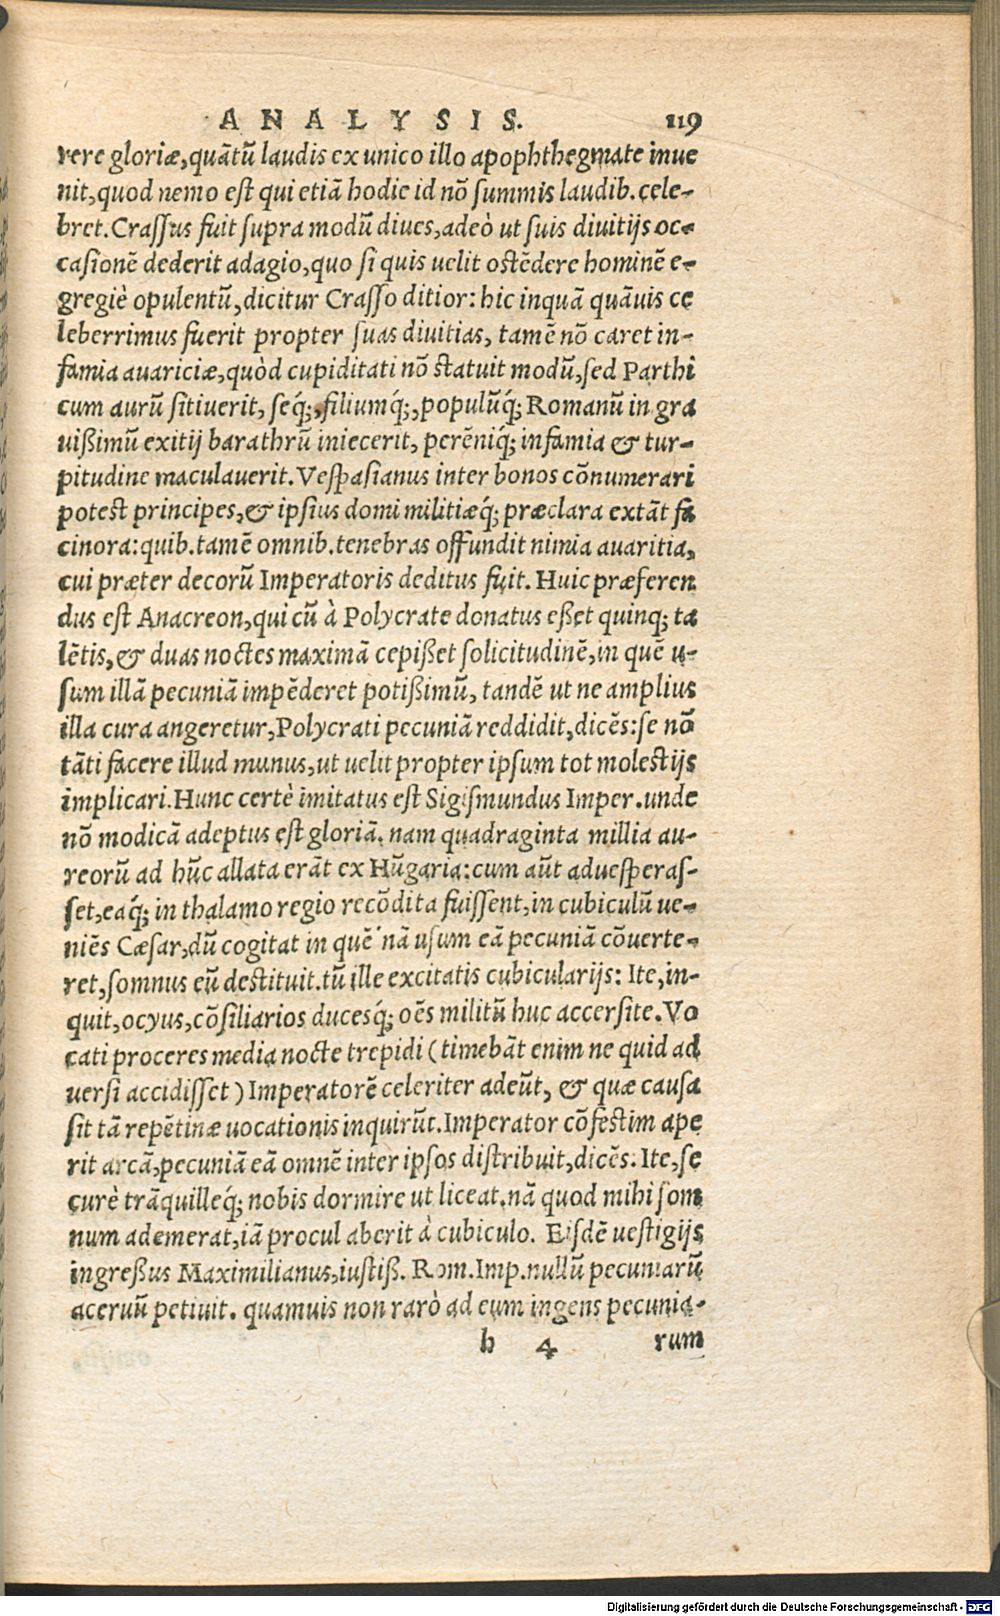 ANALYSIS. 119
rere gloriæ,quãtũ laudis ex unico illo apophthegmate inue
nit,quod nemo est qui etiã hodie id nõ summis laudib.cele-
bret.Crassus fuit supra modũ diues,adeò ut suis diuitijs oc-
casionẽ dederit adagio,quo si quis uelit ostẽdere hominẽ e-
gregiè opulentũ,dicitur Crasso ditior: hic inquã quãuis ce
leberrimus fuerit propter suas diuitias, tamẽ nõ caret in-
famia auariciæ,quòd cupiditati nõ statuit modũ,sed Parthi
cum aurũ sitiuerit, seq́;,filiumq́;,populũq́; Romanũ in gra
uißimũ exitij barathrũ iniecerit, perẽniq́; infamia & tur-
pitudine maculauerit.Vespasianus inter bonos cõnumerari
potest principes,& ipsius domi militiæq́; præclara extãt fa
cinora:quib.tamẽ omnib.tenebras offundit nimia auaritia,
cui præter decorũ Imperatoris deditus fuit. Huic præferen
dus est Anacreon,qui cũ à Polycrate donatus eßet quinq; ta
lẽtis,& duas noctes maximã cepißet solicitudinẽ,in quẽ u-
sum illã pecuniã impẽderet potißimũ, tandẽ ut ne amplius
illa cura angeretur,Polycrati pecuniã reddidit,dicẽs:se nõ
tãti facere illud munus,ut uelit propter ipsum tot molestijs
implicari.Hunc certè imitatus est Sigismundus Imper.unde
nõ modicã adeptus est gloriã. nam quadraginta millia au-
reorũ ad hũc allata erãt ex Hũgaria:cum aũt aduesperas-
set,eaq́; in thalamo regio recõdita fuissent,in cubiculũ ue-
niẽs Cæsar,dũ cogitat in quẽ nã usum eã pecuniã cõuerte-
ret,somnus eũ destituit.tũ ille excitatis cubicularijs: Ite,in-
quit,ocyus,cõsiliarios ducesq́; oẽs militũ huc accersite.Vo
cati proceres media nocte trepidi (timebãt enim ne quid ad
uersi accidisset) Imperatorẽ celeriter adeũt, & quæ causa
sit tã repẽtinæ uocationis inquirũt.Imperator cõfestim ape
rit arcã,pecuniã eã omnẽ inter ipsos distribuit,dicẽs: Ite,se
curè trãquilleq́; nobis dormire ut liceat.nã quod mihi som
num ademerat,iã procul aberit à cubiculo. Eisdẽ uestigijs
ingreßus Maximilianus,iustiß. Rom.Imp.nullũ pecuniarũ
aceruũ petiuit. quamuis non rarò ad eum ingens pecunia-
h 4 rum
Digitalisierung gefördert durch die Deutsche Forschungsgemeinschaft - DFG